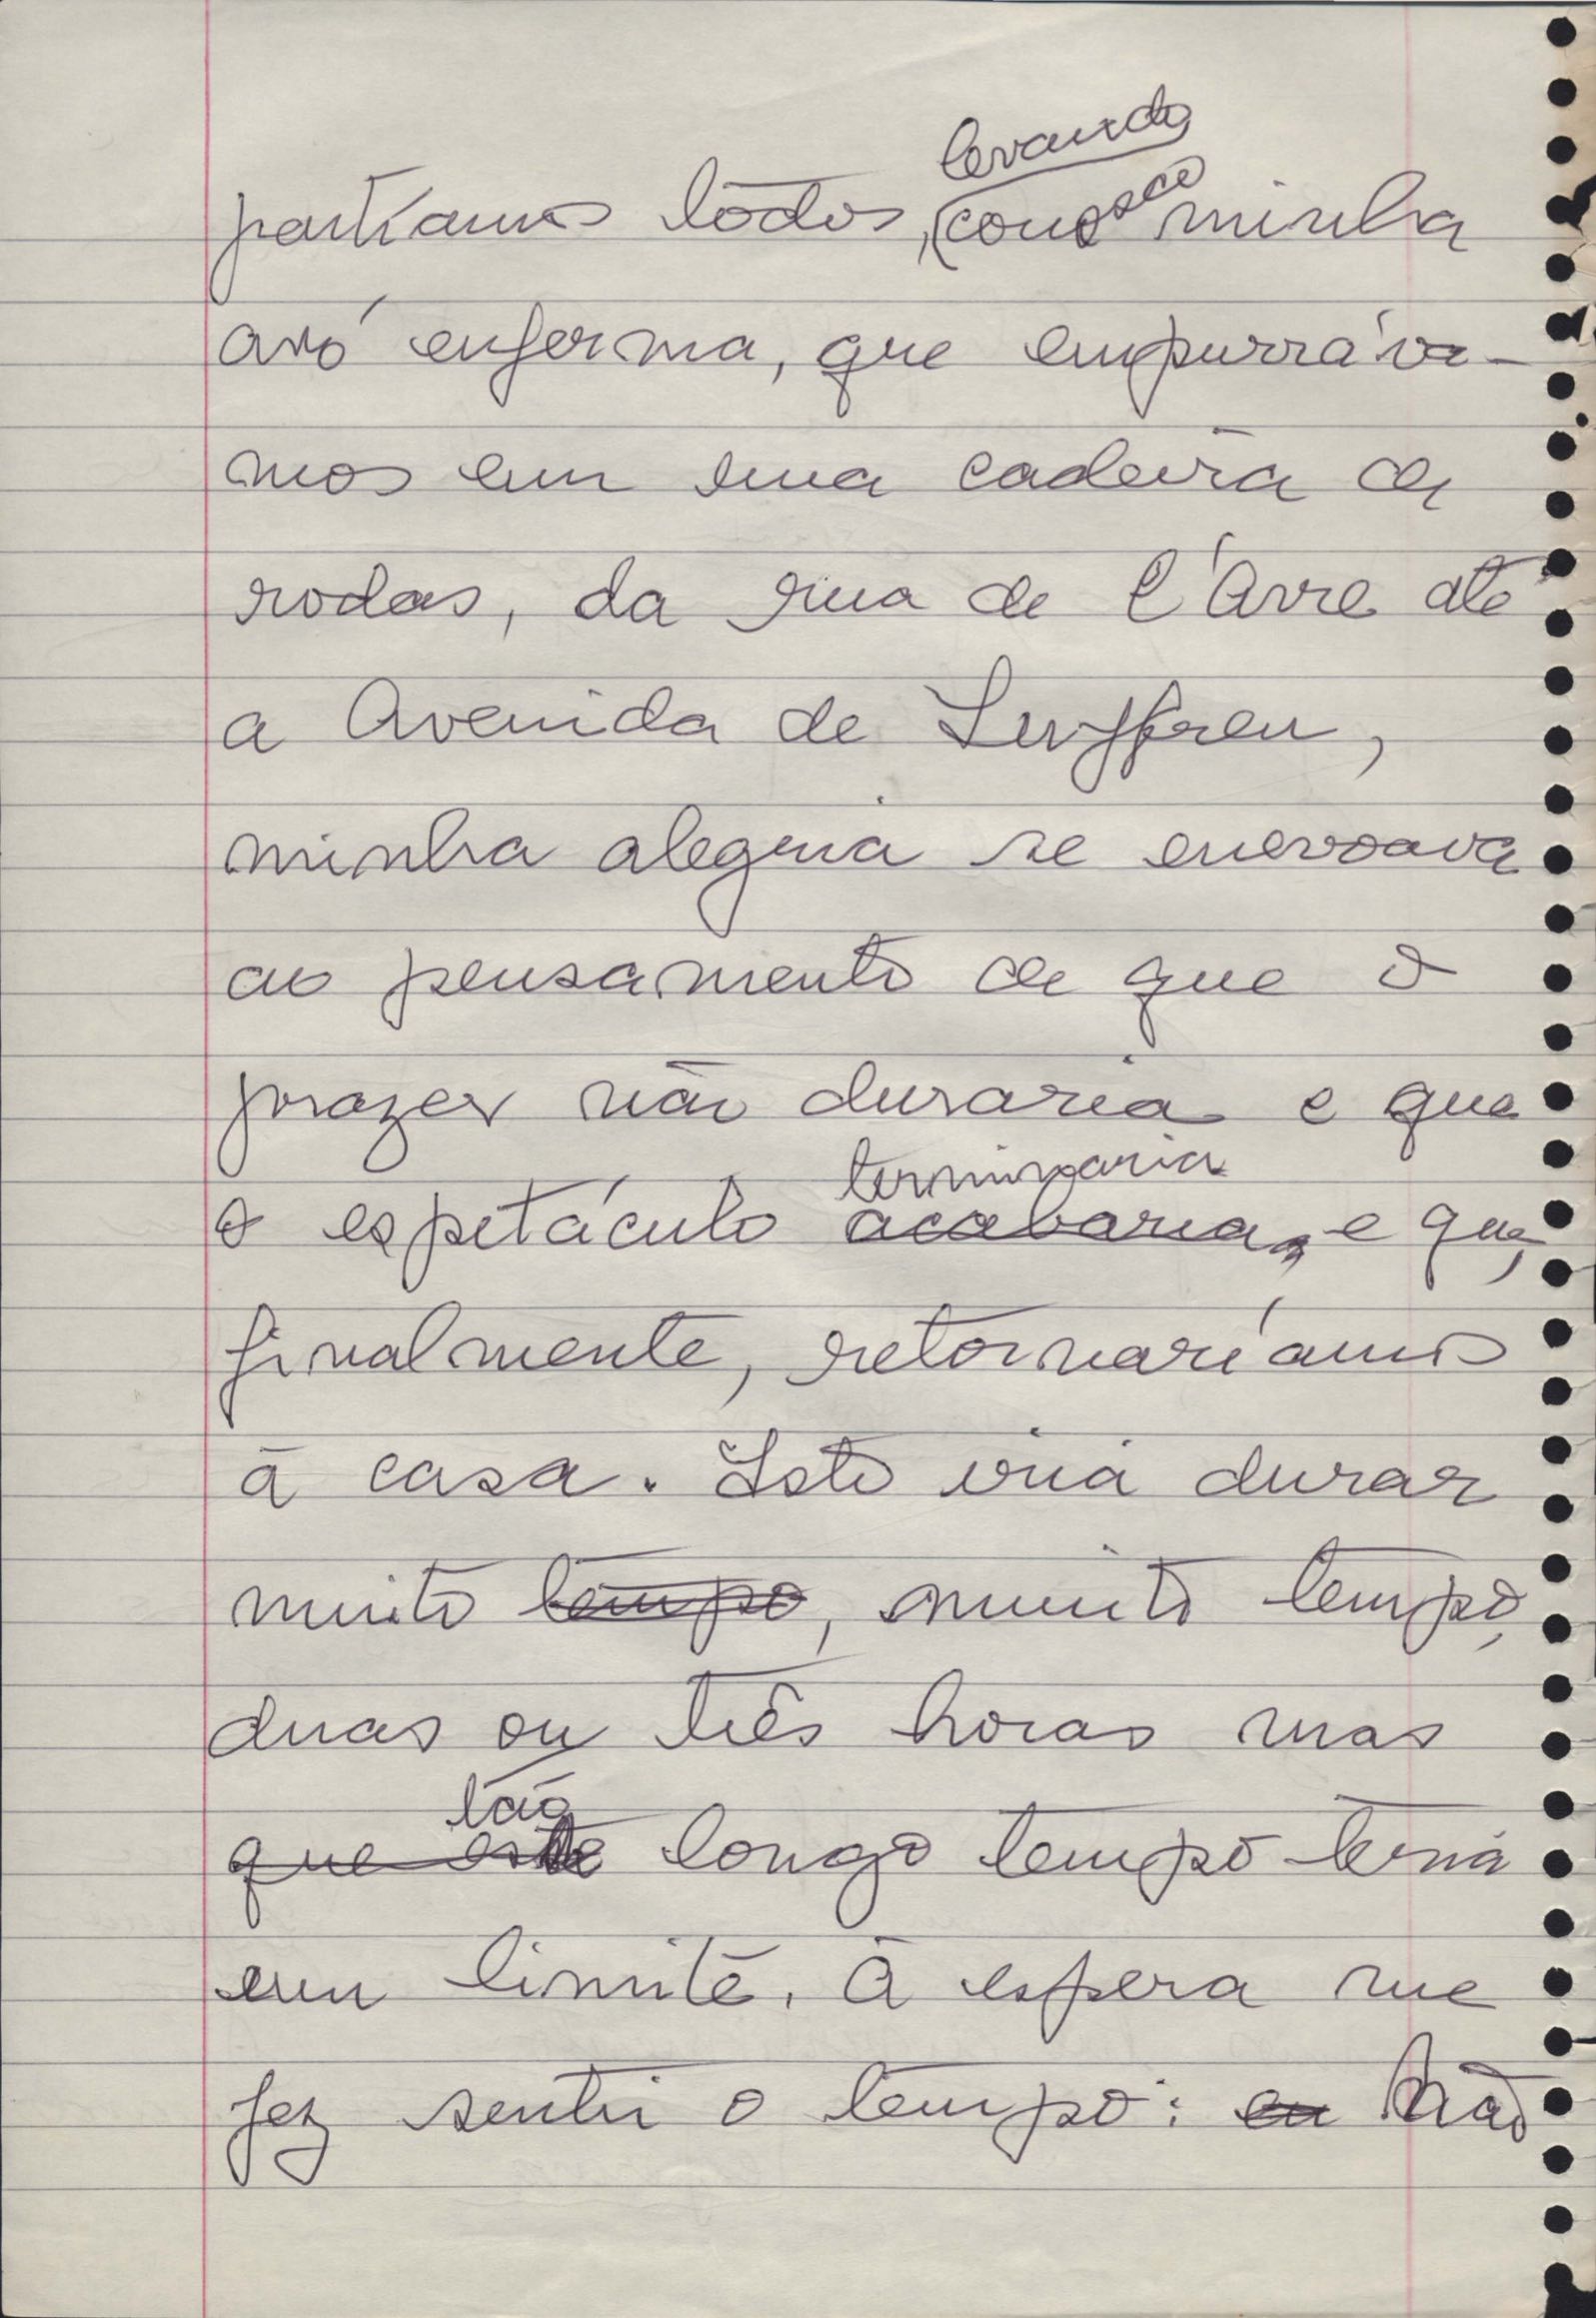 levando
partíamos todos, (conosco minha
avó enferma, que empurráva-
mos em sua cadeira de
rodas, da rua de l'Avre até
a Avenida de Suffren,
minha alegria se enevoava
ao pensamento de que o
prazer não duraria e que
terminaria
o espetáculo acabaria, e que,
finalmente, retornaríamos
à casa. Isto iria durar
muito tempo, muito tempo,
duas ou três horas mas
tão
que este longo tempo teria
um limite. A espera me
fez sentir o tempo: eu Não